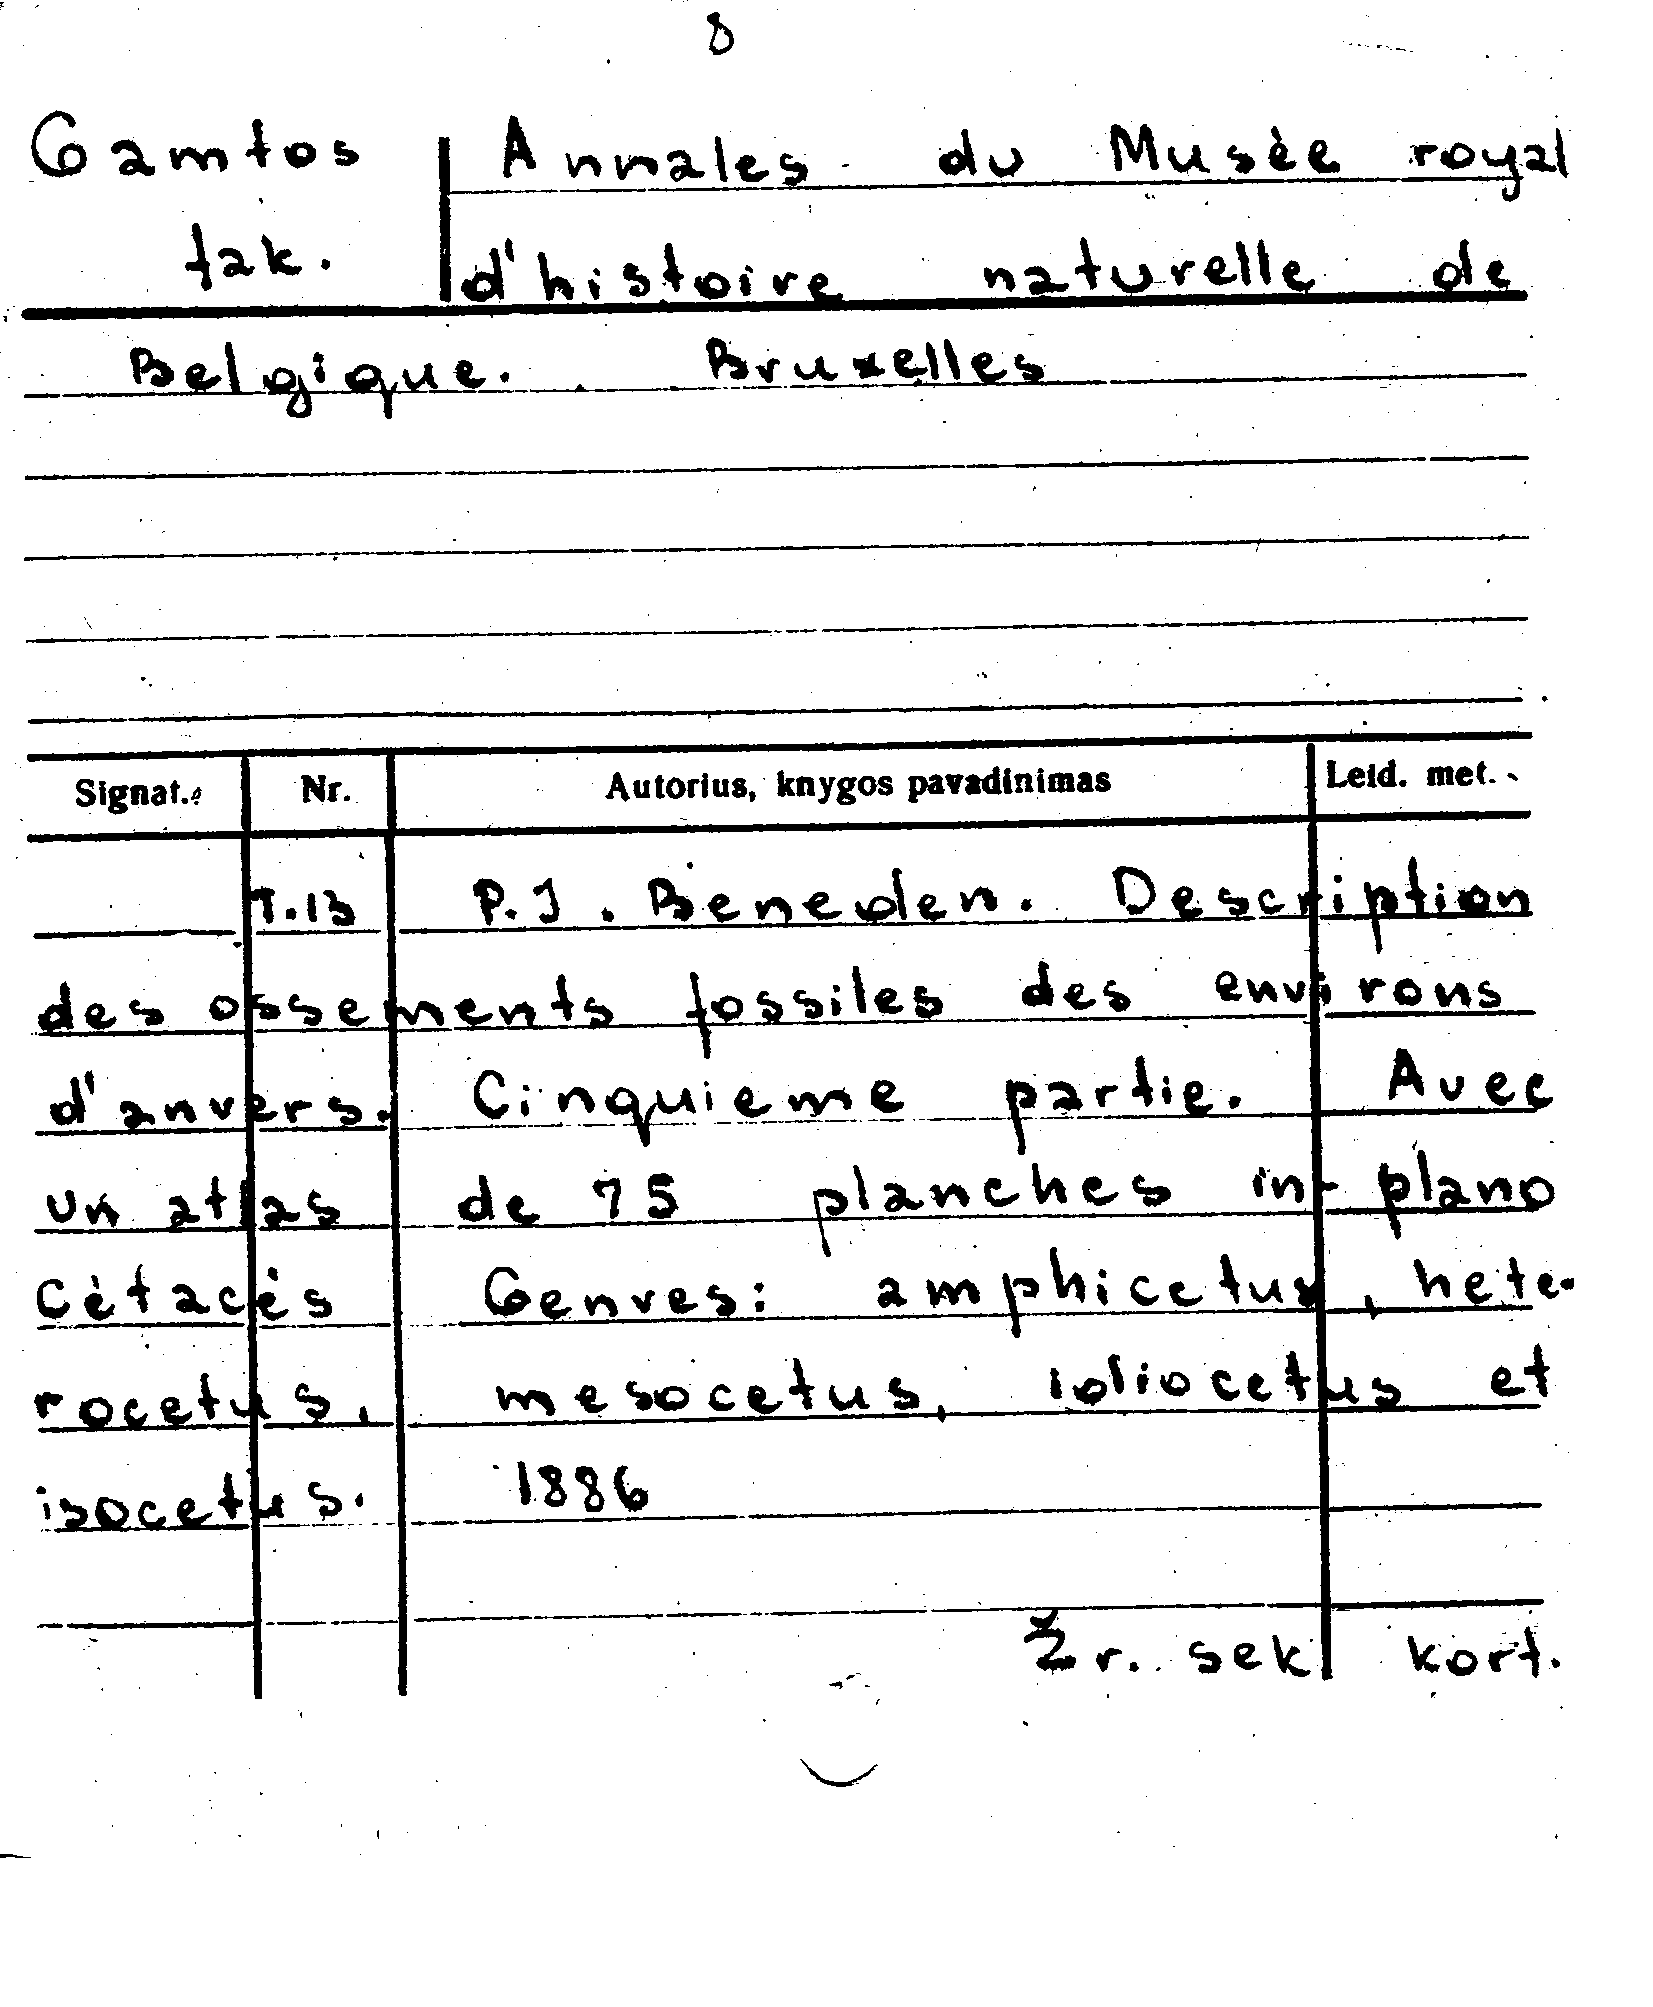 8
Gamtos | Annales du Musée royal
fak. | d'histoire naturelle de
Belgique. Bruxelles
Signat. Nr. Autorius, knygos pavadinimas Leid. met.
T.13 P.J. Beneden. Description
des ossements fossiles des environs
d'anvers. Cinquieme partie. Avec
un atlas de 75 planches in-plano
Cétacés Genres: amphicetus, hete-
rocetus, mesocetus, idiocetus et
isocetus. 1886
Žr. sek kort.